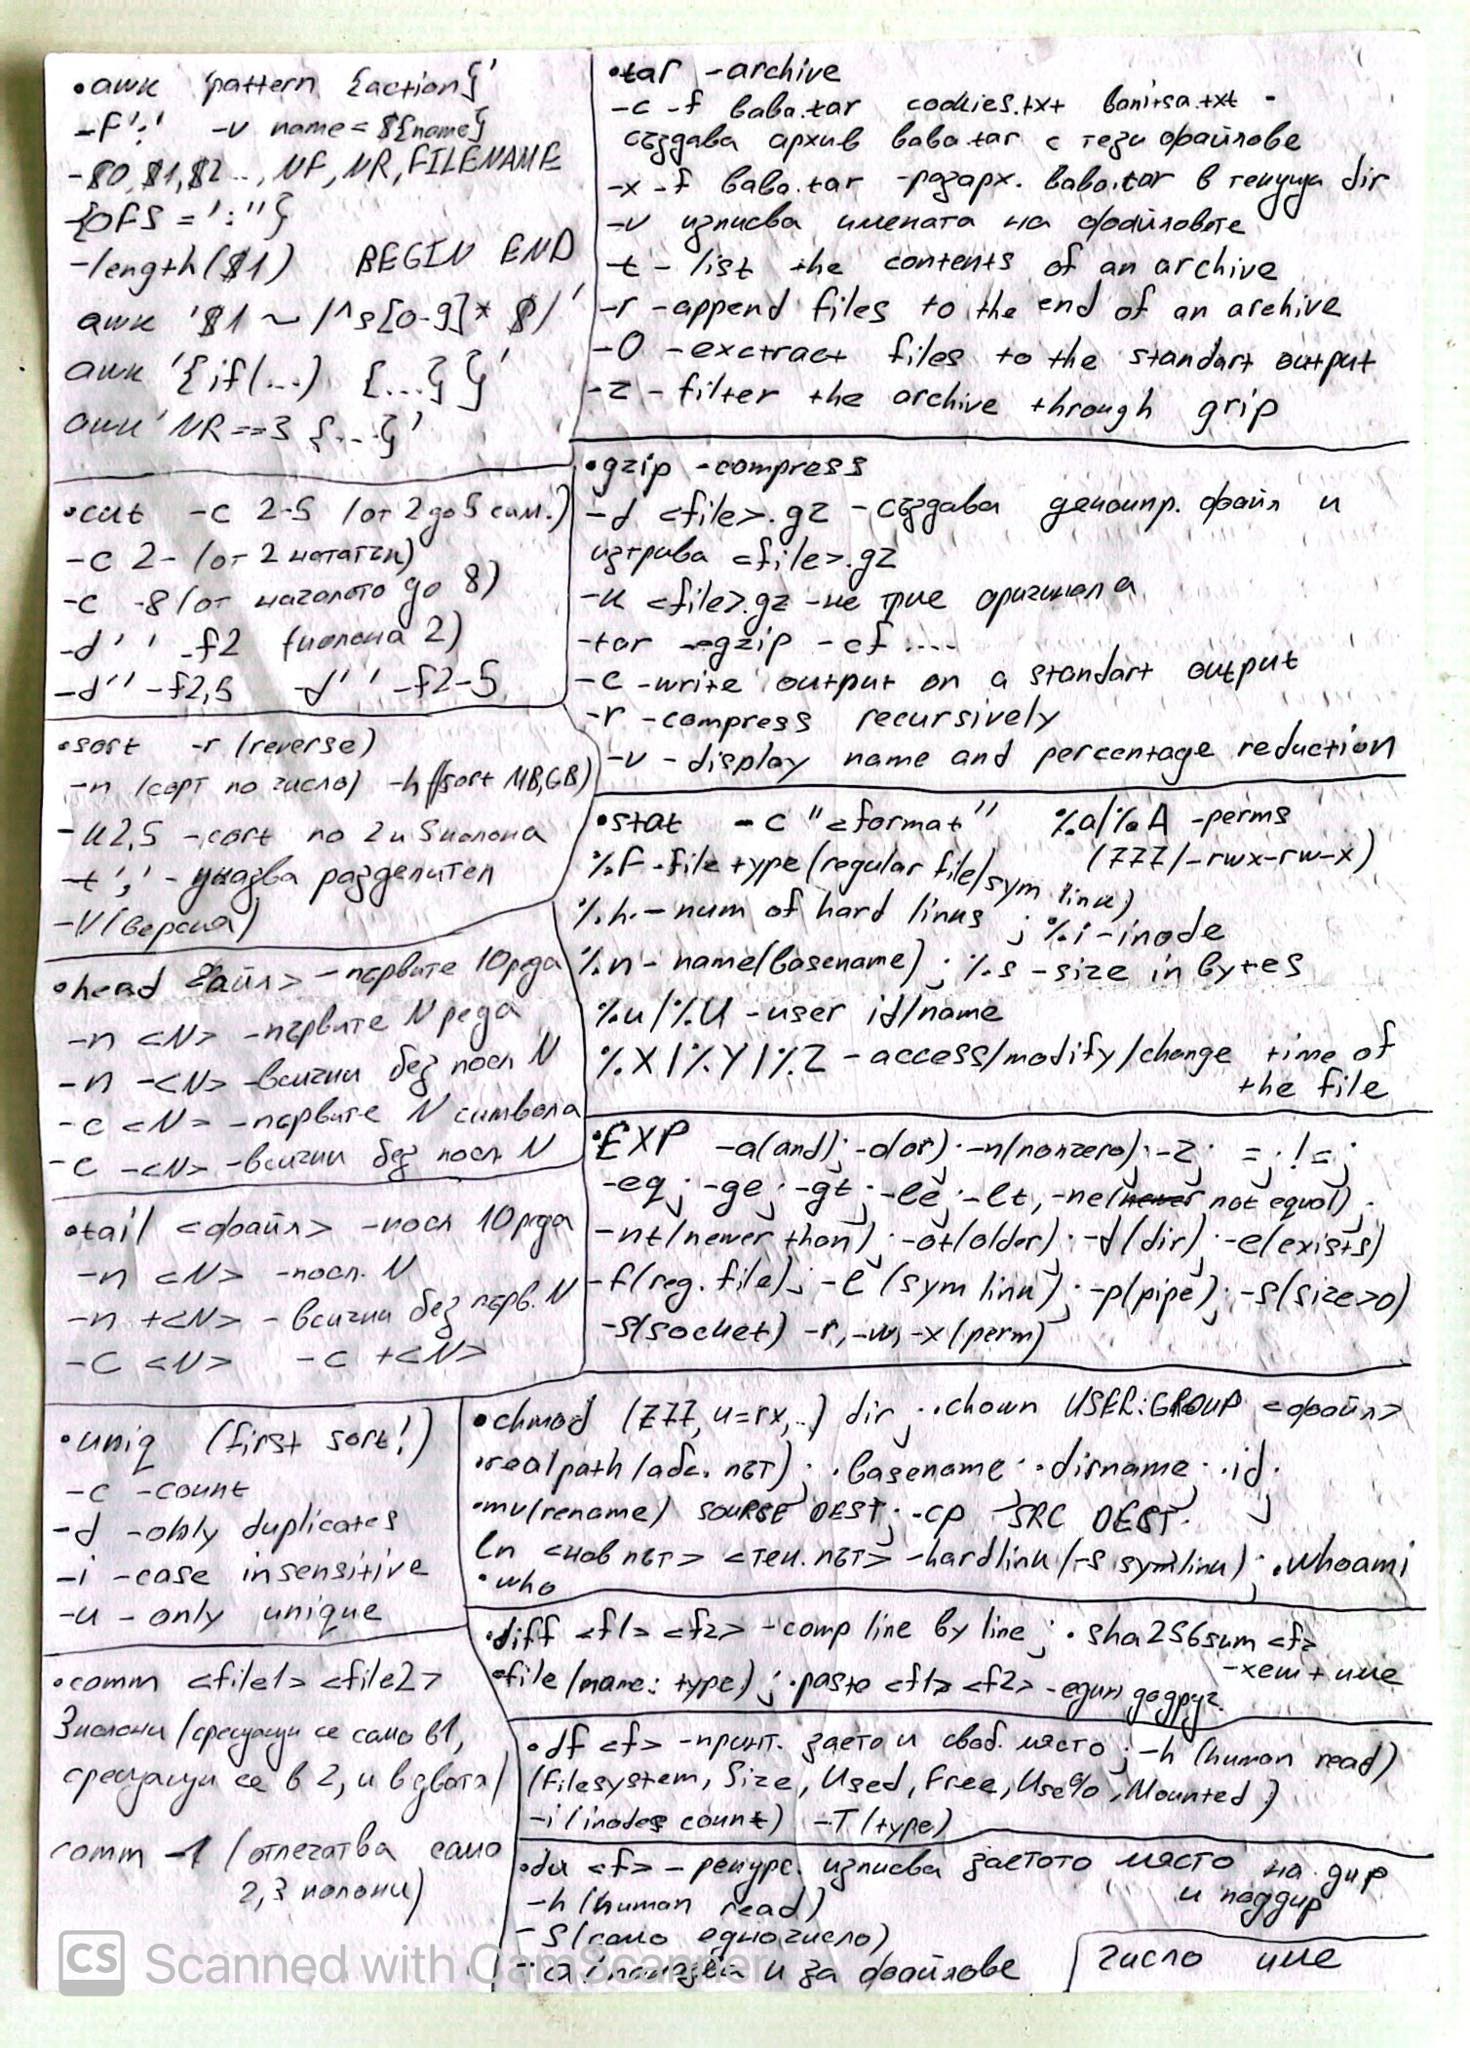 •awk 'pattern {action}'
-F':' -v name=${name}
-$0,$1,$2..., NF, NR, FILENAME
{OFS = ':''}
-length($1) BEGIN END
awk '$1 ~ /^s[0-9]*$/'
awk '{if(...) {...}}'
awk 'NR==3 {...}'
•cut -c 2-5 (от 2 до 5 сим.)
-c 2- (от 2 нататък)
-c -8 (от началото до 8)
-d' ' -f2 (колона 2)
-d'' -f2,5 -d' ' -f2-5
•sort -r (reverse)
-n (сорт по число) -h (sort MB,GB)
-k2,5 -сорт по 2 и 5 колона
-t',' - указва разделител
-V (версия)
•head <файл> - първите 10 реда
-n <N> -първите N реда
-n -<N> -всички без посл N
-c <N> -първите N символа
-c -<N> -всички без посл. N
•tail <файл> -посл 10 реда
-n <N> -посл. N
-n +<N> - всички без първ. N
-c <N> -c +<N>
•uniq (first sort!)
-c -count
-d -only duplicates
-i -case insensitive
-u - only unique
•comm <file1> <file2>
3 колони (срещащи се само в 1,
срещащи се в 2, и в двата)
comm -1 (отпечатва само
2,3 колони)
•tar -archive
-c -f baba.tar cookies.txt banitsa.txt -
създава архив baba.tar с тези файлове
-x -f baba.tar -разарх. baba.tar в текущия dir
-v изписва имената на файловете
-t - list the contents of an archive
-r -append files to the end of an archive
-O -exctract files to the standart output
-z - filter the archive through grip
•gzip -compress
-d <file>.gz -създава декомпр. файл и
изтрива <file>.gz
-k <file>.gz -не трие оригинала
-tar --gzip -cf ....
-c -write output on a standart output
-r -compress recursively
-v - display name and percentage reduction
•stat -c "<format" %a/%A -perms
(777/-rwx-rw-x)
%F -file type (regular file/sym link)
%h - num of hard links ; %i -inode
%n - name(basename) ; %s -size in bytes
%u/%U -user id/name
%X/%Y/%Z - access/modify/change time of
the file
•EXP -a(and); -o(or); -n(nonzero); -z; =; !=;
-eq; -ge; -gt; -le; -lt, -ne(not equal);
-nt(newer than); -ot(older); -d(dir); -e(exists)
-f(reg. file); -l (sym link); -p(pipe); -s(size>0)
-s(socket) -r, -w, -x (perm)
•chmod (777, u=rx,..) dir ; •chown USER:GROUP <файл>
•realpath (абс. път); •basename; •dirname; •id;
•mv(rename) SOURSE DEST; •cp SRC DEST;
ln <нов път> <тек. път> -hardlink (-s symlink) ; •whoami
•who
•diff <f1> <f2> -comp line by line ; •sha256sum <f>
-хеш + име
•file (name: type) ; •paste <f1> <f2> -един до друг
•df <f> -принт. заето и своб. място ; -h (human read)
(Filesystem, Size, Used, Free, Use%, Mounted)
-i (inodes count) -T (type)
•du <f> - рекурс. изписва заетото място на дир
и поддир
-h (human read)
-s (само едно число)
-a (показва и за файлове
число име
CS Scanned with CamScanner